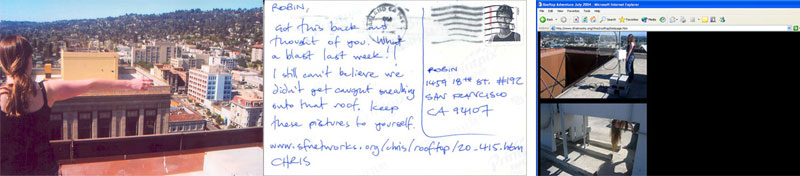 ROBIN,
Got this back and
thought of you. What
a blast last week!
I still can't believe we
didn't get caught sneaking
onto that roof. Keep
these pictures to yourself.
www.sfnetworks.org/chris/rooftop/20_415.htm
CHRIS
ROBIN
1459 18TH ST. #192
SAN FRANCISCO
CA 94107
Rooftop Adventure July 2004 - Microsoft Internet Explorer